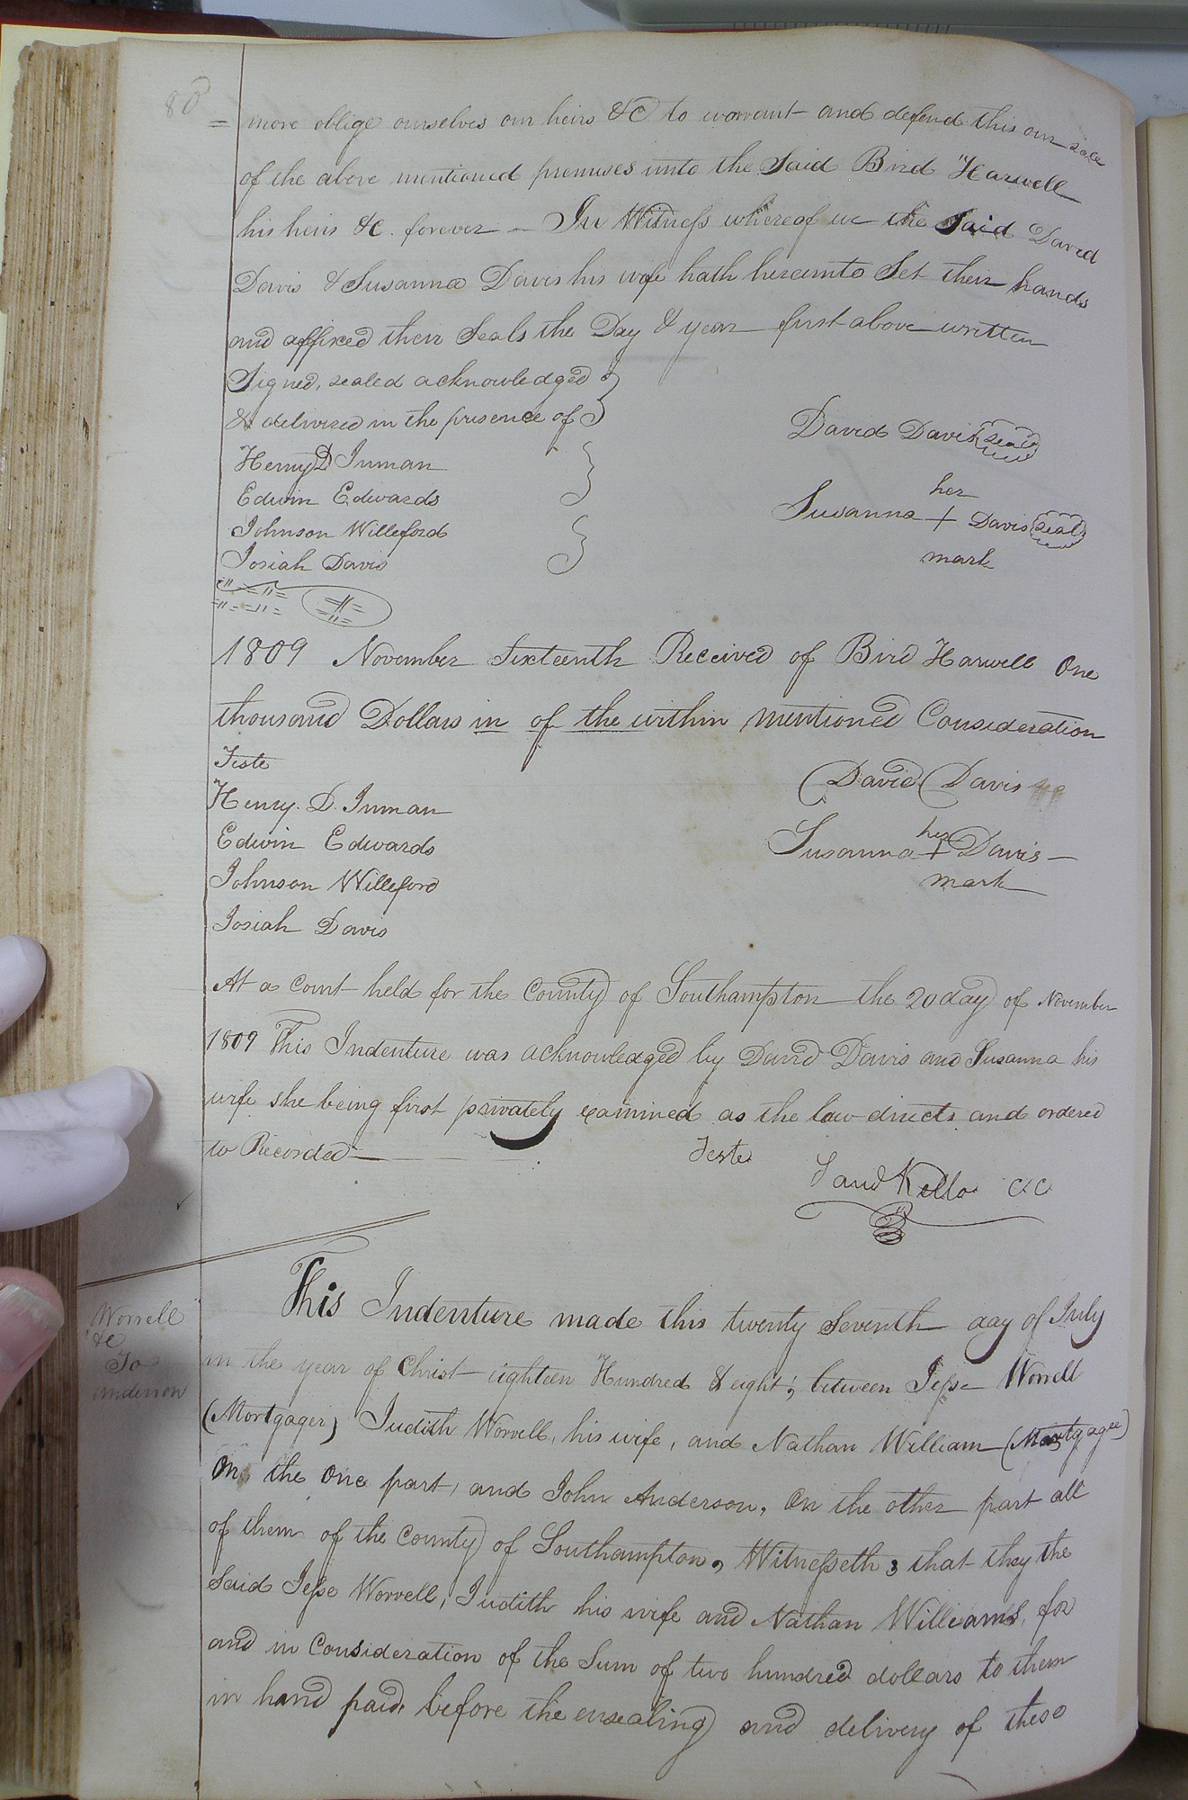 80
= more oblige ourselves our heirs &C to warrant and defend this our sale
of the above mentioned premises unto the Said Bird Harwell
his heirs &C. forever – In Witness whereof we the Said David
Davis & Susanna Davis his wife hath hereunto Set their hands
and affixed their Seals the Day & year first above written
Signed, sealed acknowledged
& delivered in the presence of
David Davis seal
Henry D Inman
Edwin Edwards
her
Susanna + Davis seal
mark
Johnson Willeford
Josiah Davis
1809 November Sixteenth Received of Bird Harwell One
thousand Dollars in of the within mentioned Consideration
Teste
David Davis
Henry. D. Inman
Edwin Edwards
her
Susanna + Davis –
mark
Johnson Willeford
Josiah Davis
At a Court held for the County of Southampton the 20 day of November
1809 This Indenture was acknowledged by David Davis and Susanna his
wife she being first privately examined as the law directs and ordered
to Recorded –
Teste
Saml Kello CC
Worrell
&c
To
Anderson
This Indenture made this twenty Seventh day of July
in the year of Christ eighteen Hundred & eight; between Jesse Worrell
(Mortgager) Judith Worrell, his wife, and Nathan William (Mortgagee)
On the One part, and John Anderson, On the other part all
of them of the County of Southampton, Witnesseth; that they the
Said Jesse Worrell, Judith his wife and Nathan Williams, for
and in Consideration of the Sum of two hundred dollars to them
in hand paid, before the ensealing and delivery of these